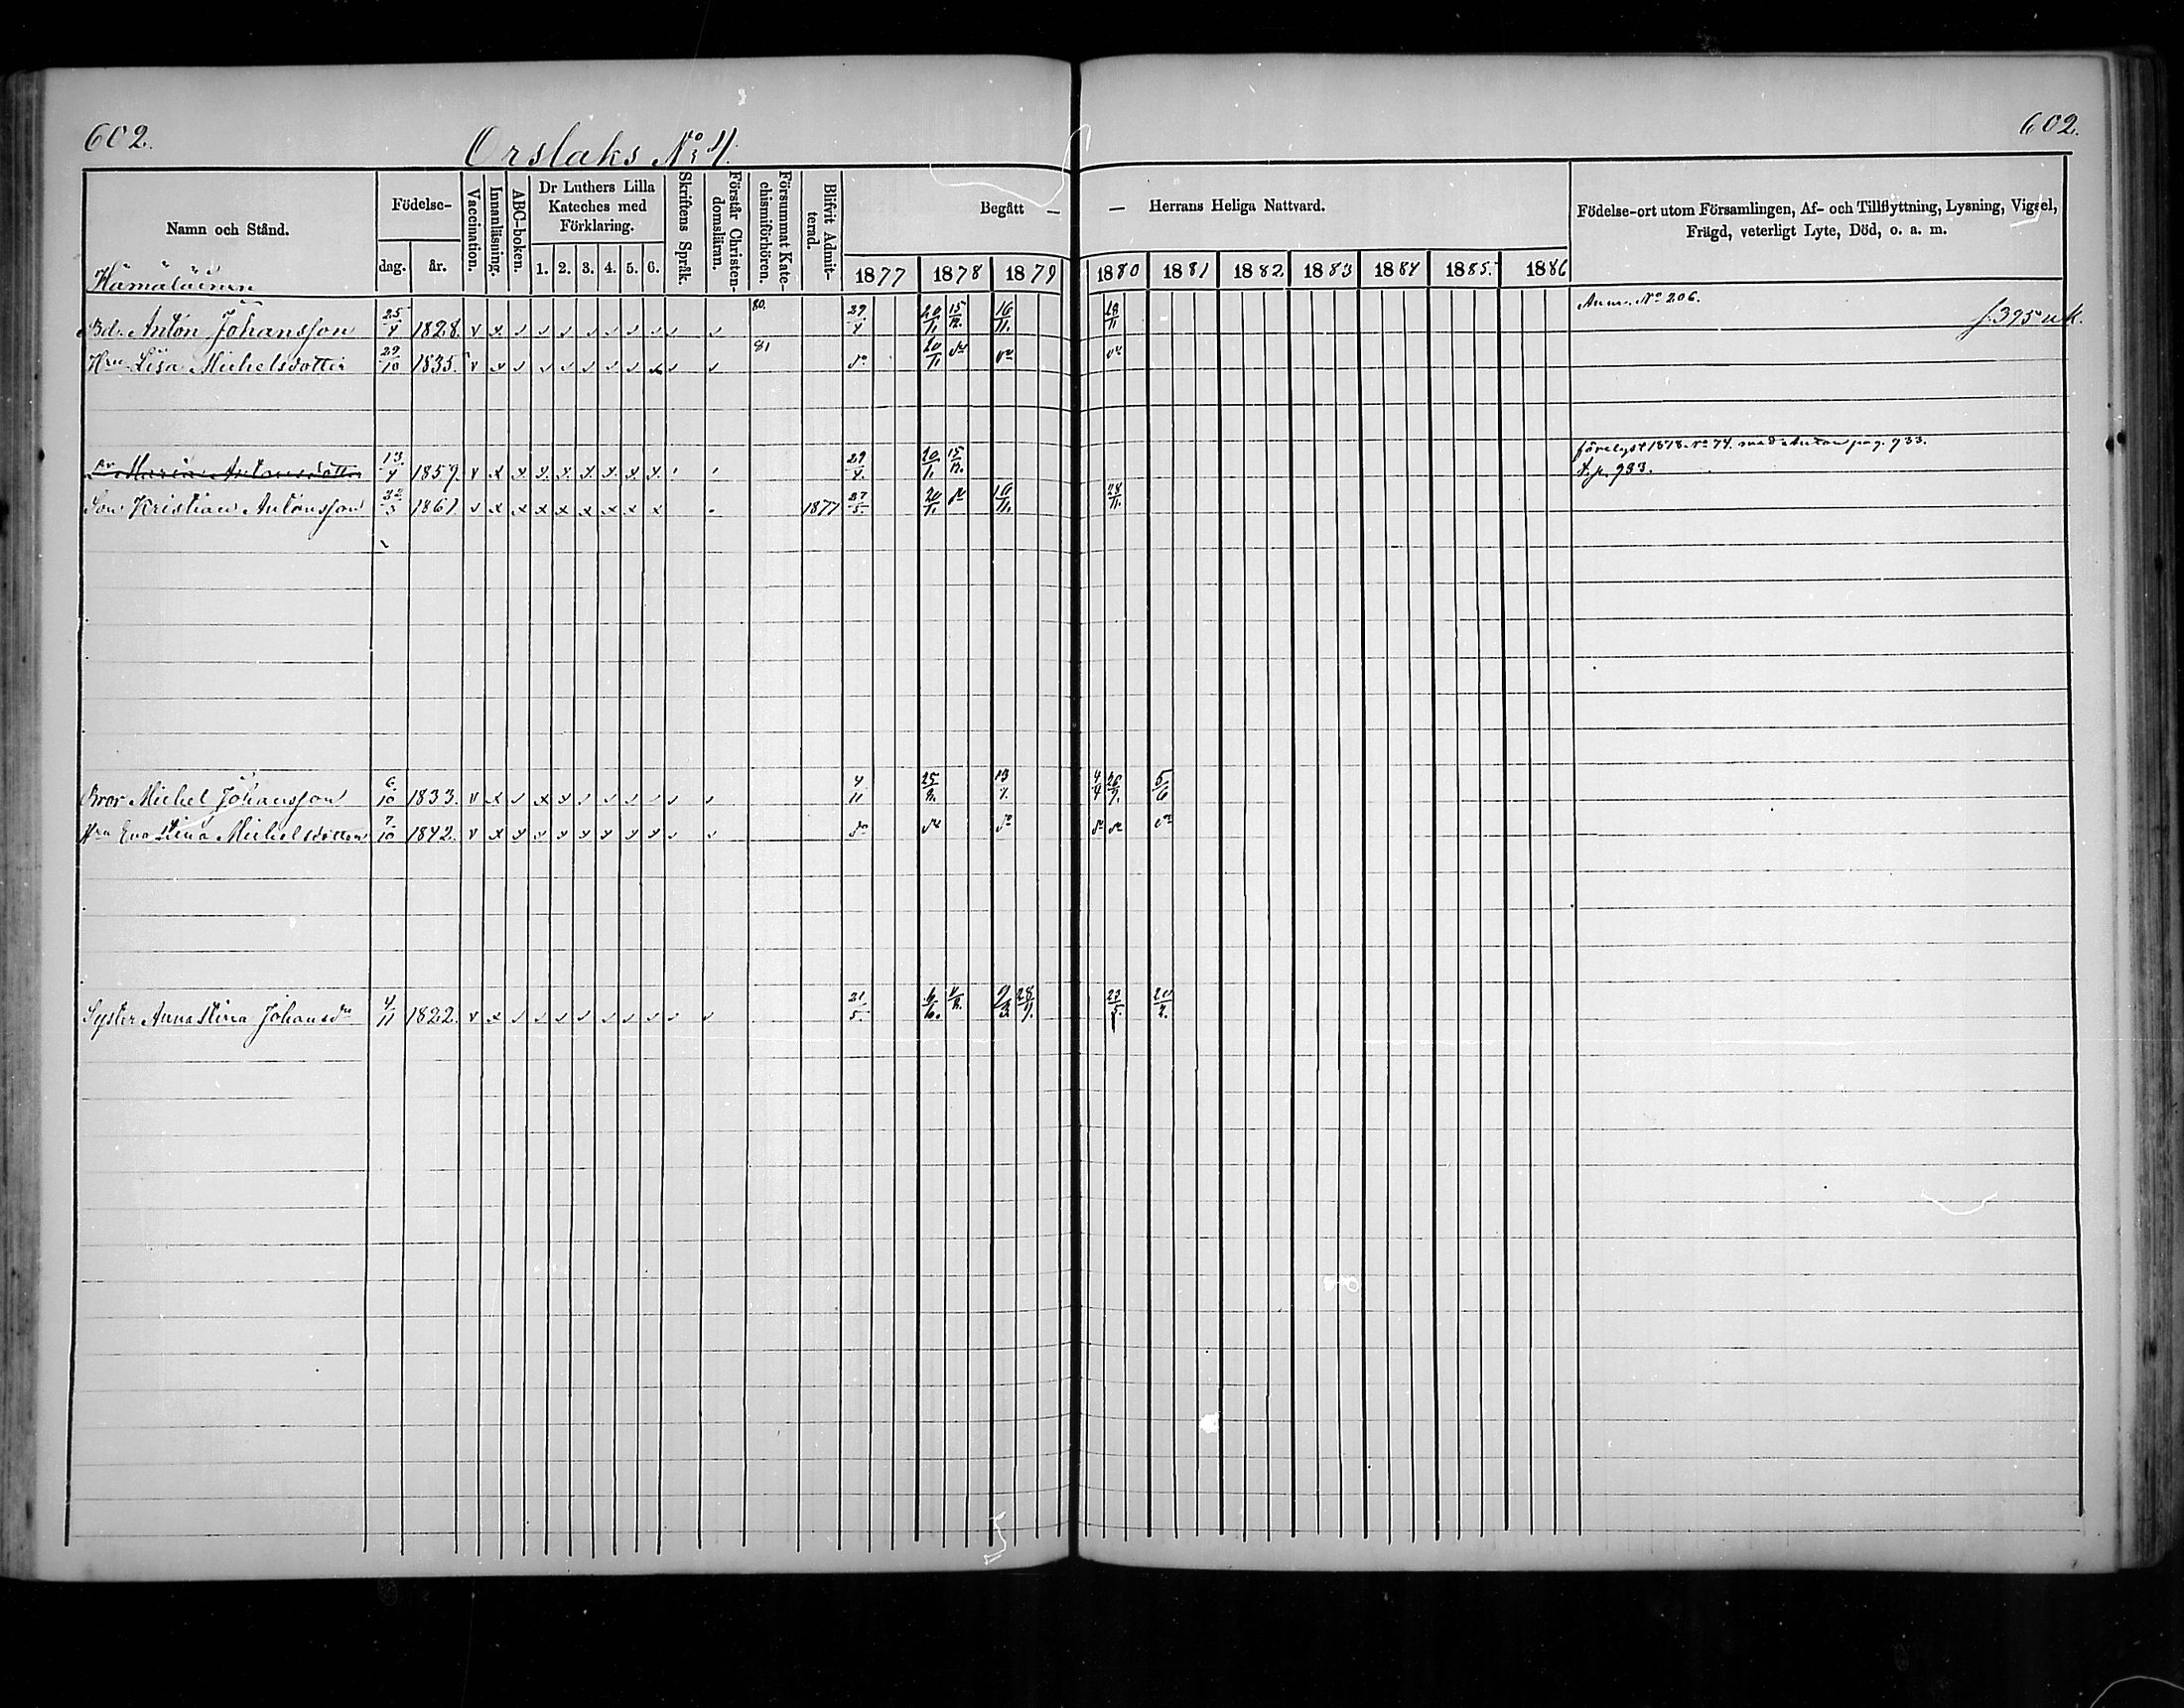 602. Orslaks No 4. 602.
Namn och Stånd. Födelse- dag. år. Vaccination. Innanläsning. ABC-boken. Dr Luthers Lilla Kateches med Förklaring. 1. 2. 3. 4. 5. 6. Skriftens Språk. Förstår Christen-domsläran. Försummat Kate-chismiförhören. Blifvit Admit-terad. Begått — — Herrans Heliga Nattvard. Födelse-ort utom Församlingen, Af- och Tillflyttning, Lysning, Vigsel, Frägd, veterligt Lyte, Död, o. a. m.
1877 1878 1879 1880 1881 1882 1883 1884 1885. 1886
Hämäläinen
Bd. Anton Johansson 25/4 1828. 80. 29/4 20/1 15/12. 16/11. 28/11 Anm. No 206. f. 395 u k.
Hru Lisa Michelsdotter 29/10 1835. 81 do 20/11 do do do
Maria Antonsdotter 13/4 1857. 29/4. 20/1. 15/12. förelyst 1878. No 74. med Anton pag. 933.
t. p. 933.
Son Kristian Antonsson 1861 1877 27/5 20/1. do 16/11. 28/11.
Bror Michel Johansson 6/10 1833. 4/11 25/8. 13/7. 4/4 26/9. 5/6
Hru Eva Stina Michelsdotter 7/10 1842. do do do do do do
Syster Anna Stina Johansdr 4/11 1822. 21/5. 28/9. 23/5. 20/2.